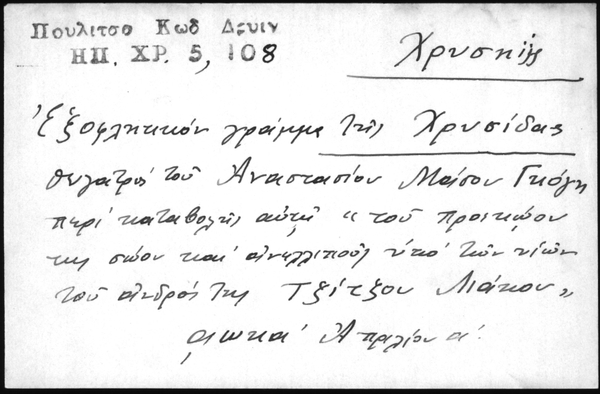 Πουλιτσο Κωδ Δρυιν
ΗΠ. ΧΡ. 5, 108
Χρυσηίς
Ἐξοφλητικὸν γράμμα τῆς Χρυσίδας
θυγατρὸς τοῦ Ἀναστασίου Μάσου Γκόγκη
περὶ καταβολῆς αὐτῇ „ τοῦ προικῴου
της σῶον καὶ ἀνελλιποῦς ὑπὸ τῶν υἱῶν
τοῦ ἀνδρός της Τζίτζου Λιάκου „
αωκα' Ἀπριλίου α'.